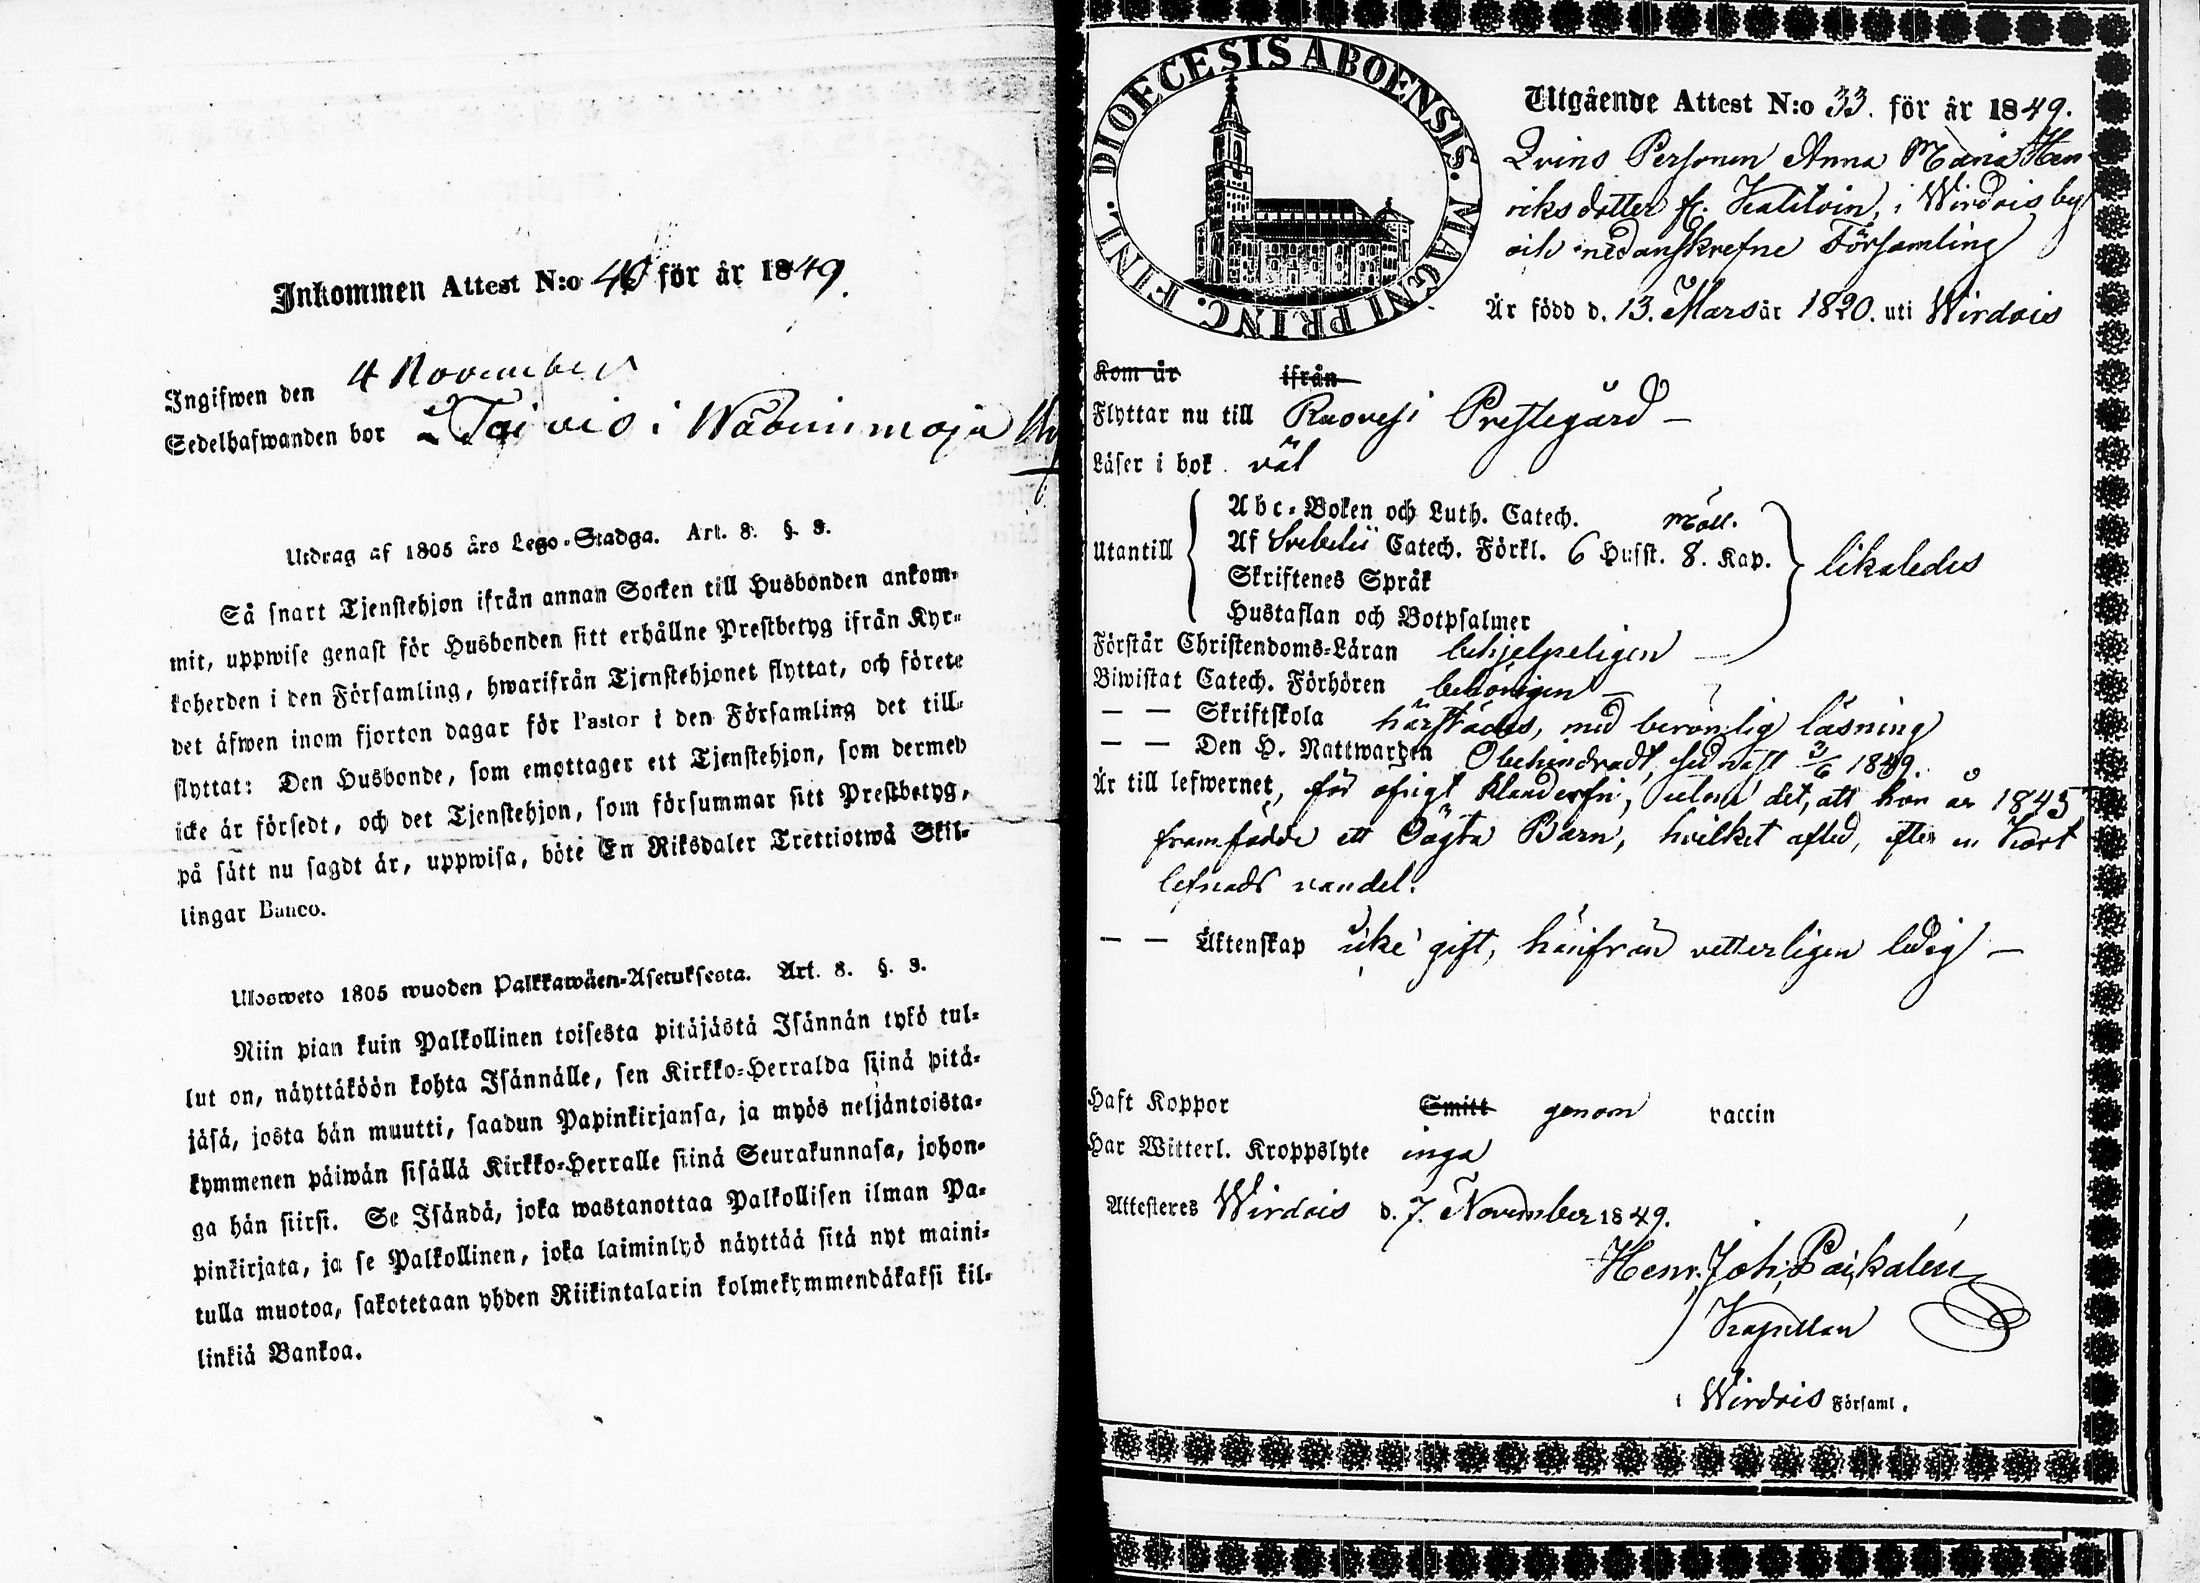 Inkommen Attest N:o 40 för år 1849.
Ingifwen den 4 November
Sedelhafwanden bor i
Utdrag af 1805 års Lego-Stadga. Art. 8. §. 3.
Så snart Tjenstehjon ifrån annan Socken till Husbonden ankom-
mit, uppwise genast för Husbonden sitt erhållne Prestbetyg ifrån Kyr-
koherden i den Församling, hwarifrån Tjenstehjonet flyttat, och förete
det äfwen inom fjorton dagar för Pastor i den Församling det till-
flyttat: Den Husbonde, som emottager ett Tjenstehjon, som dermed
icke är försedt, och det Tjenstehjon, som försummar sitt Prestbetyg,
på sätt nu sagdt är, uppwisa, böte En Riksdaler Trettiotwå Skil-
lingar Banco.
Ulosweto 1805 wuoden Palkkawäen-Asetuksesta. Art. 8. §. 3.
Niin pian kuin Palkollinen toisesta pitäjästä Isännän tykö tul-
lut on, näyttäköön kohta Isännälle, sen Kirkko-Herralda siinä pitä-
jäsä, josta hän muutti, saadun Papinkirjansa, ja myös neljäntoista-
kymmenen päiwän sisällä Kirkko-Herralle siinä Seurakunnasa, johon-
ga hän siirsi. Se Isändä, joka wastanottaa Palkollisen ilman Pa-
pinkirjata, ja se Palkollinen, joka laiminlyö näyttää sitä nyt maini-
tulla muotoa, sakotetaan yhden Riikintalarin kolmekymmendäkaksi kil-
linkiä Bankoa.
DIOECESIS ABOENSIS. MAGNI PRINC. FINL.
Utgående Attest N:o 33. för år 1849.
Qvins Personen Anna Maria Hen-
riksdotter fr. i Wirdois by
och nedanskrefne Församling
Är född d. 13. Mars år 1820. uti Wirdois
Kom år ifrån
Flyttar nu till Ruovesi Prestegård –
Läser i bok väl
Utantill
Abc-Boken och Luth. Catech.
Af Svebelii Catech. Förkl. 6 Husst. 8. Kap. Möll.
Skriftenes Språk
Hustaflan och Botpsalmer
likaledes
Förstår Christendoms-Läran behjelpeligen –
Biwistat Catech. Förhören behörigen –
— — Skriftskola härstädes, med berömlig läsning
— — Den H. Nattwarden Obehindradt, sednast 3/6 1849.
Är till lefwernet, för öfrigt klanderfri, utom det, att hon år 1845
framfödde ett Oägta Barn, hvilket afled, efter en kort
lefnads vandel.
— — Äktenskap icke gift, härifrån vetterligen ledig –
Haft Koppor Smitt genom vaccin
Har Witterl. Kroppslyte inga
Attesteres Wirdois d. 7. November 1849.
Henr. Joh. Paikalén
Kapellan
i Wirdois Församl.